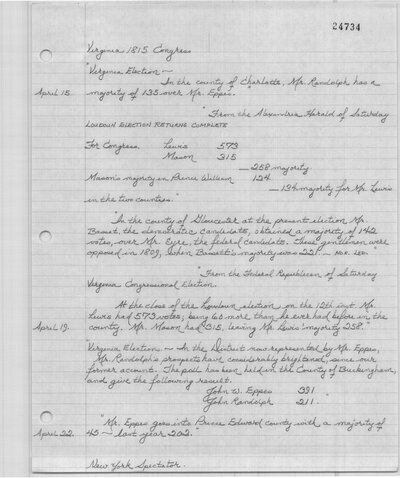 24734
Virginia 1815 Congress
"Virginia Election —
In the county of Charlotte, Mr. Randolph has a
April 15. majority of 135 over Mr. Eppes."
"From the Alexandria Herald of Saturday
LOUDOUN ELECTION RETURNS COMPLETE
For Congress. Lewis 573
Mason 315
—258 majority
Mason's majority in Prince William 124
—134 majority for Mr. Lewis
in the two counties."
"In the county of Gloucester at the present election Mr.
Basset, the democratic candidate, obtained a majority of 142
votes, over Mr. Eyre, the federal candidate. These gentlemen were
opposed in 1809, when Basset's majority was 221." — NOR. LED.
"From the Federal Republican of Saturday
Virginia Congressional Election.
At the close of the Loudoun election on the 12th inst. Mr.
Lewis had 573 votes; being 60 more than he ever had before in the
April 19. county. Mr. Mason had 315, leaving Mr. Lewis' majority 258."
"Virginia Election. — In the District now represented by Mr. Eppes,
Mr. Randolph's prospects have considerably brightened, since our
former account. The poll has been held in the County of Buckingham,
and gave the following result.
John W. Eppes 391
John Randolph 211."
"Mr. Eppes goes into Prince Edward county with a majority of
April 22. 45 — last year 202."
New York Spectator.